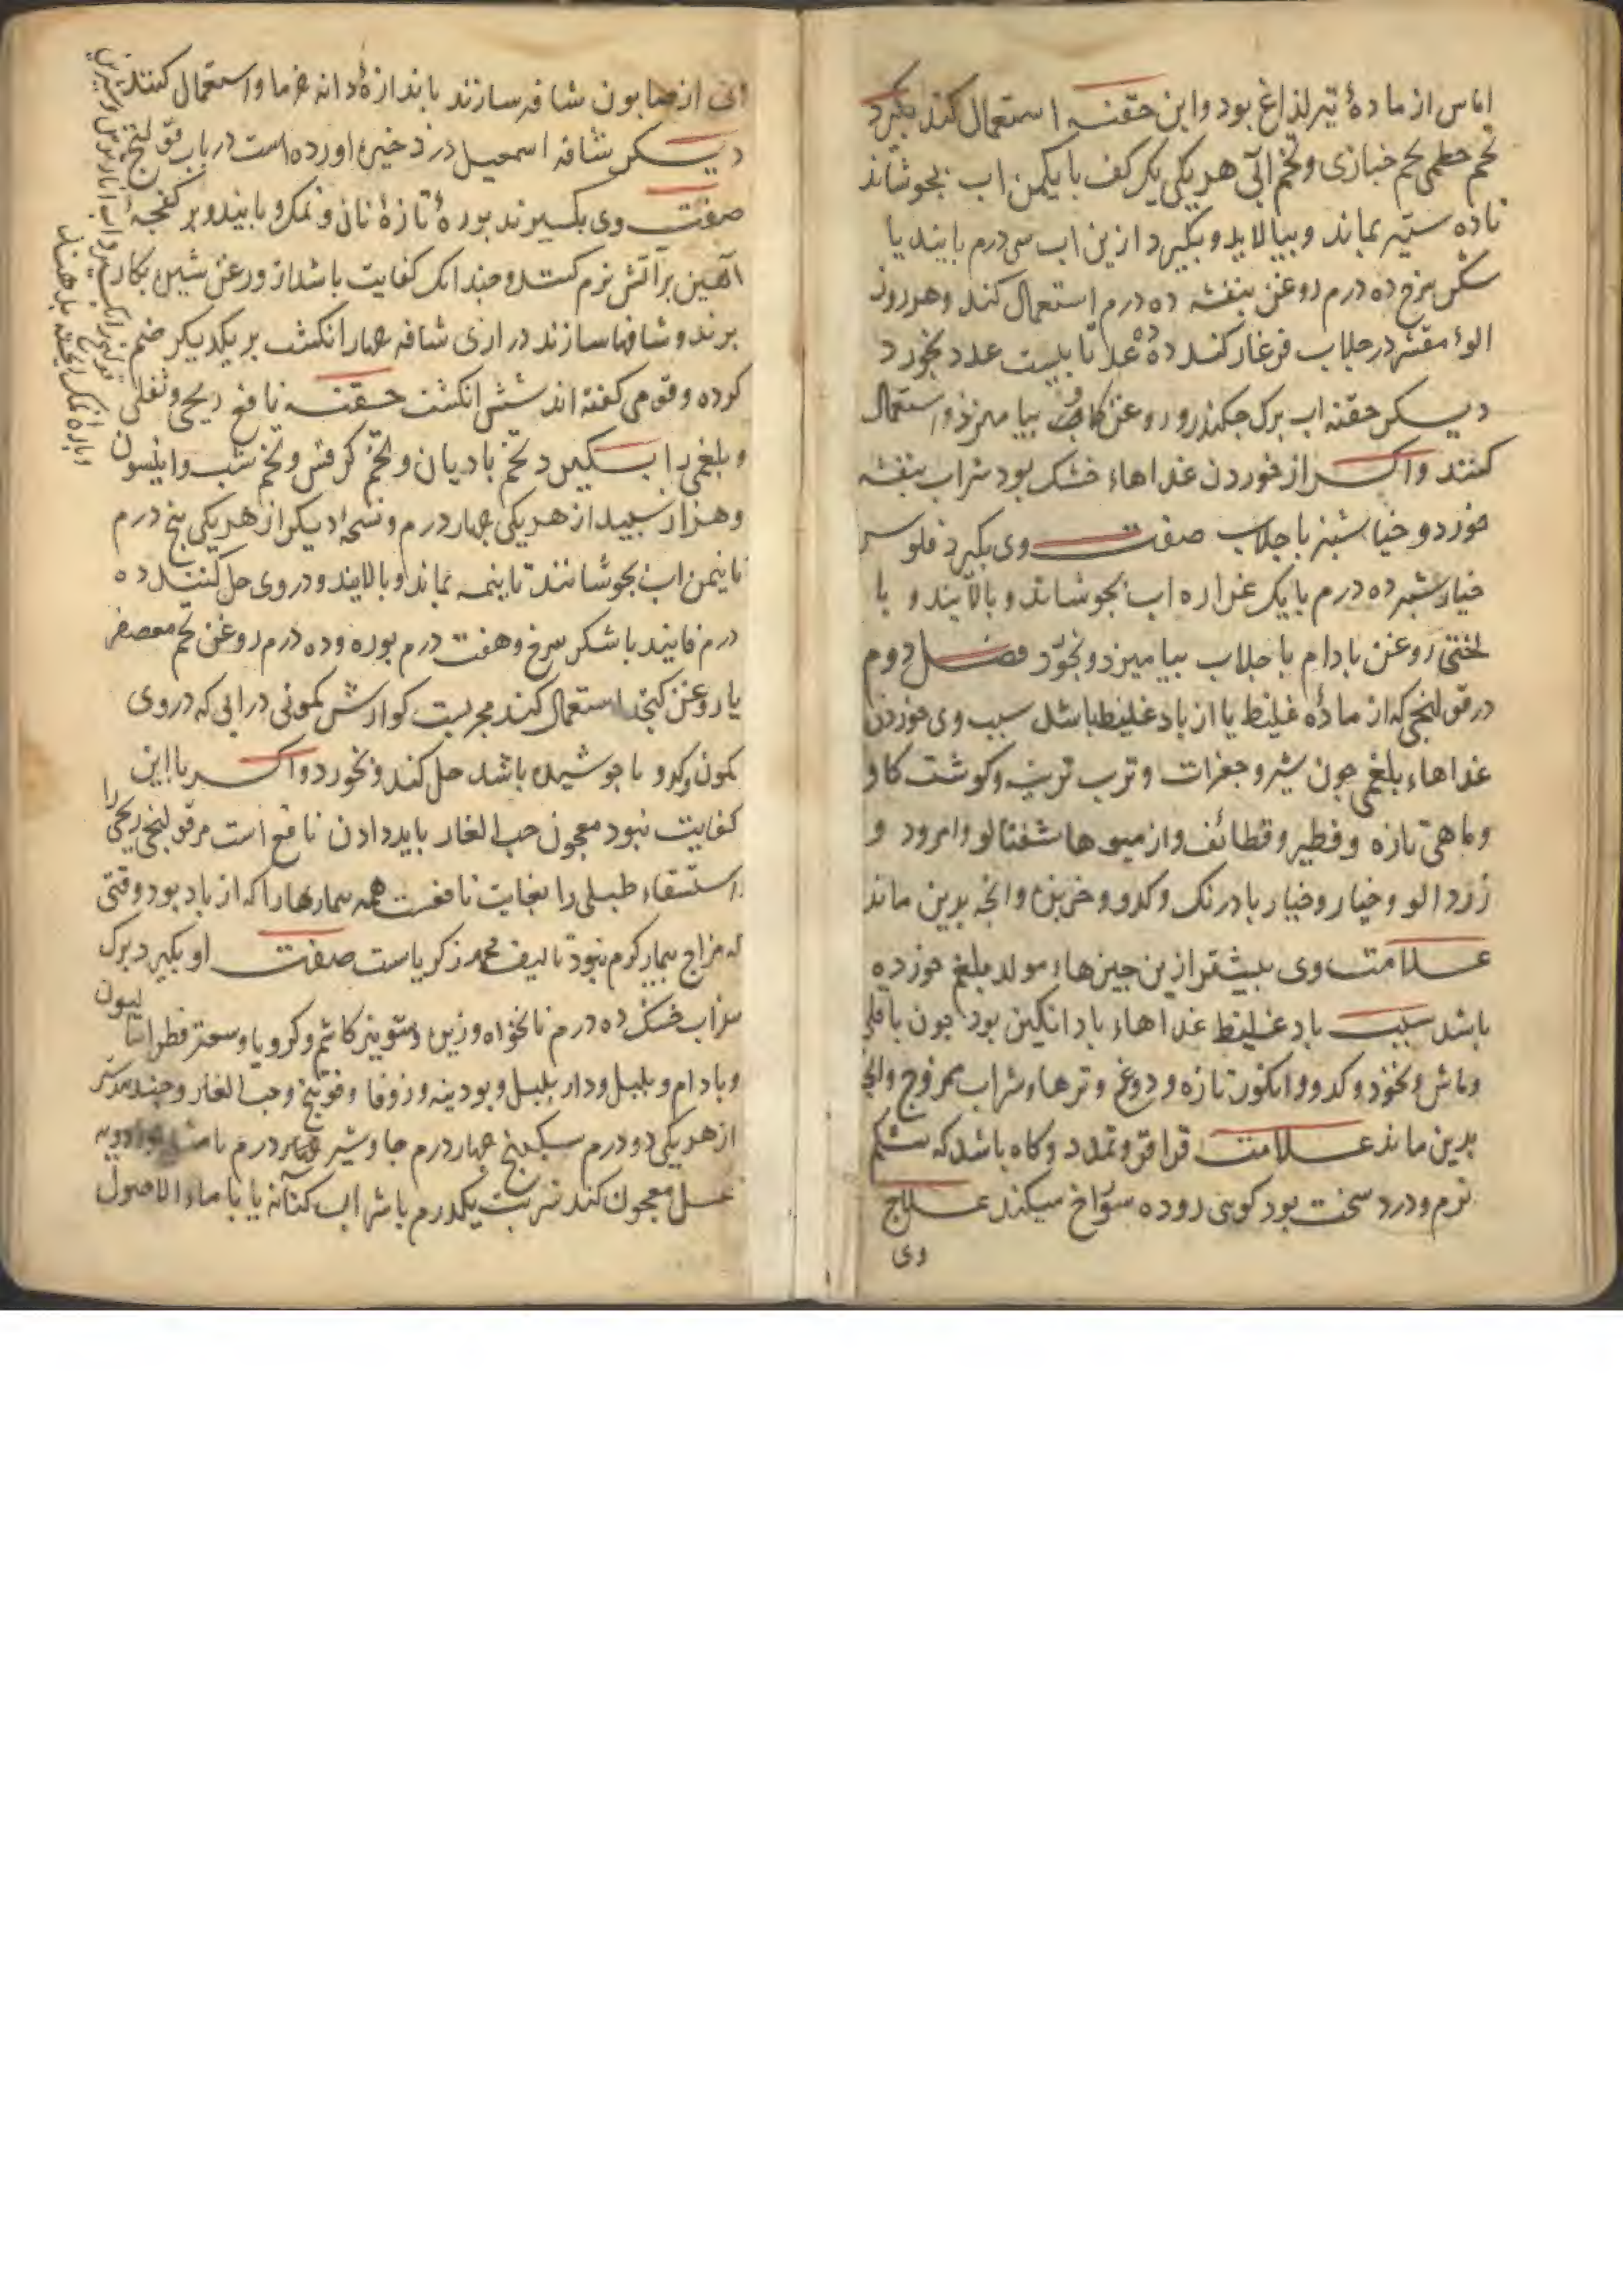 اماس از مادهٔ تیز لذاغ بود و این حقنه استعمال کند بکیرد
تخم خطمی تخم خبازی و تخم آبی هر یکی یک کف با یکمن اب بجوشاند
تا ده ستیر بماند و بپالاید و بکیرد ازین اب سی درم پانید یا
شکر سرخ ده درم روغن بنفشه ده درم استعمال کند و هر روز
الوء مقشر در جلاب فرغار کند ده عدد تا بیست عدد بخورد
دیکر حقنه اب برک چکندر و روغن بیامیزد و استعمال
کنند و اکر از خوردن غداهاء خشک بود شراب بنفشه
خورد و خیارشنبر با جلاب صفت وی بکیرد فلوس
خیارشنبر ده درم با یک غراره اب بجوشاند و بالایند و با
لختی روغن بادام با جلاب بیامیزد و بخورد فصل دوم
در قولنجی که از مادهٔ غلیظ یا از باد غلیظ باشد سبب وی خوردن
غداهاء بلغمی چون شیر و جغرات و ترب تربی و کوشت کاو
و ماهی تازه و فطیر و قطائف و از میوها شفتالو و امرود و
زردالو و خیار و خیار بادرنک و کدو و خربزه و انچه بدین ماند
علامت وی بیشتر ازین چیزهاء مولد بلغم خورده
باشد سبب باد غلیظ غداهاء باد انکیز بود چون باقلی
و ماش و نخود و کدو و انکور تازه و دوغ و ترها و شراب ممزوج و انچ
بدین ماند علامت قراقر و تمدد و کاه باشد که شکم
نرم و درد سخت بود کویی روده سوراخ میکند علاج
وی
از صابون شافه سازند باندازهٔ دانه خرما و استعمال کنند
دیکر شافه اسمعیل در ذخیره اورده است در باب قولنج
صفت وی بکیرند بوره تازهٔ نانی و نمک و پانید و بر کفجهٔ
اهنین بر اتش نرم کنند و چندانک کفایت باشد از روغن شیره بکار
برند و شافها سازند درازی شافه چهار انکشت بر یکدیکر ضم
کرده و قومی کفته اند شش انکشت حقنه نافع ریحی و ثفلی
و بلغمی را بکیرد تخم بادیان و تخم کرفس و تخم شب و انیسون
و هزار سبید از هر یکی چهار درم و نسخه دیکر از هر یکی پنج درم
نا نیمن اب بجوشانند تا نیمه بماند و بالایند و در وی حل کنند ده
درم فانید با شکر سرخ و هفت درم بوره و ده درم روغن تخم معصفر
یا روغن کنجد استعمال کند مجربست کوارش کمونی در ابی که در وی
کمون و کرویا جوشیده باشد حل کند و بخورد و اکر با این
کفایت نبود معجون حب الغار باید دادن نافع است مر قولنجی ریحی را
استسقاء طبلی را بغایت نافعست همه بیماریها را که از باد بود وقتی
که مزاج بیمار کرم نبود تالیف محمد زکریاست صفت او بکیرد برک
سداب خشک ده درم نانخواه و زیره و شونیز کاشم و کرویا و سعتر فطراسالیون
و بادام و بلبل و دار بلبل و بودینه و زوفا و فوتنج و حب الغار و جندبیدستر
از هر یکی دو درم سکبینج چهار درم جاوشیر چهار درم
عسل معجون کند شربت یکدرم با شراب کهنه یا با ماء الاصول